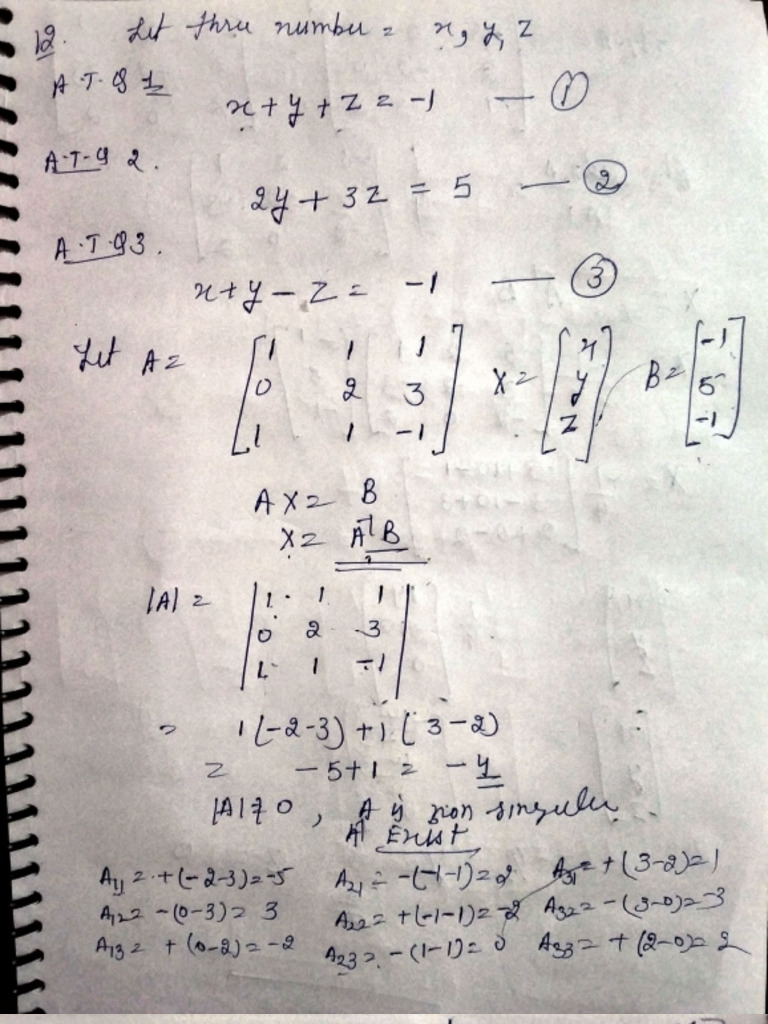 12. Let thru number = x, y, z
A.T.Q 1
x + y + z = -1 — ①
A.T.Q 2.
2y + 3z = 5 — ②
A.T.Q3.
x + y - z = -1 — ③
Let A = [1 1 1 X = [x B = [-1
0 2 3 y 5
1 1 -1] z] -1]
AX = B
X = A⁻¹B
|A| = |1 1 1
0 2 3
1 1 -1|
= 1(-2-3) + 1(3-2)
= -5+1 = -4
|A| ≠ 0, A is non singular
A⁻¹ Exist
A₁₁ = +(-2-3)=-5 A₂₁ = -(-1-1)=2 A₃₁ = +(3-2)=1
A₁₂ = -(0-3)= 3 A₂₂ = +(-1-1)=-2 A₃₂ = -(3-0)=-3
A₁₃ = +(0-2)=-2 A₂₃ = -(1-1)=0 A₃₃ = +(2-0)=2